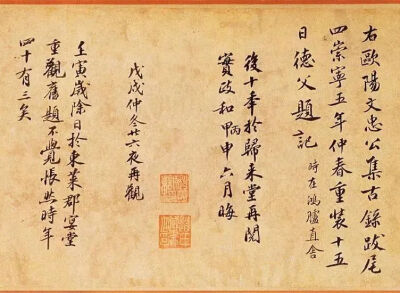 右歐陽文忠公集古錄跋尾
四崇寧五年仲春重裝十五
日德父題記 時在鴻臚直舍
後十年於歸來堂再閱
實政和甲丙申六月晦
戊戌仲冬廿六夜再觀
壬寅歲除日於東萊郡宴堂
重觀舊題不覺悵然時年
四十有三矣